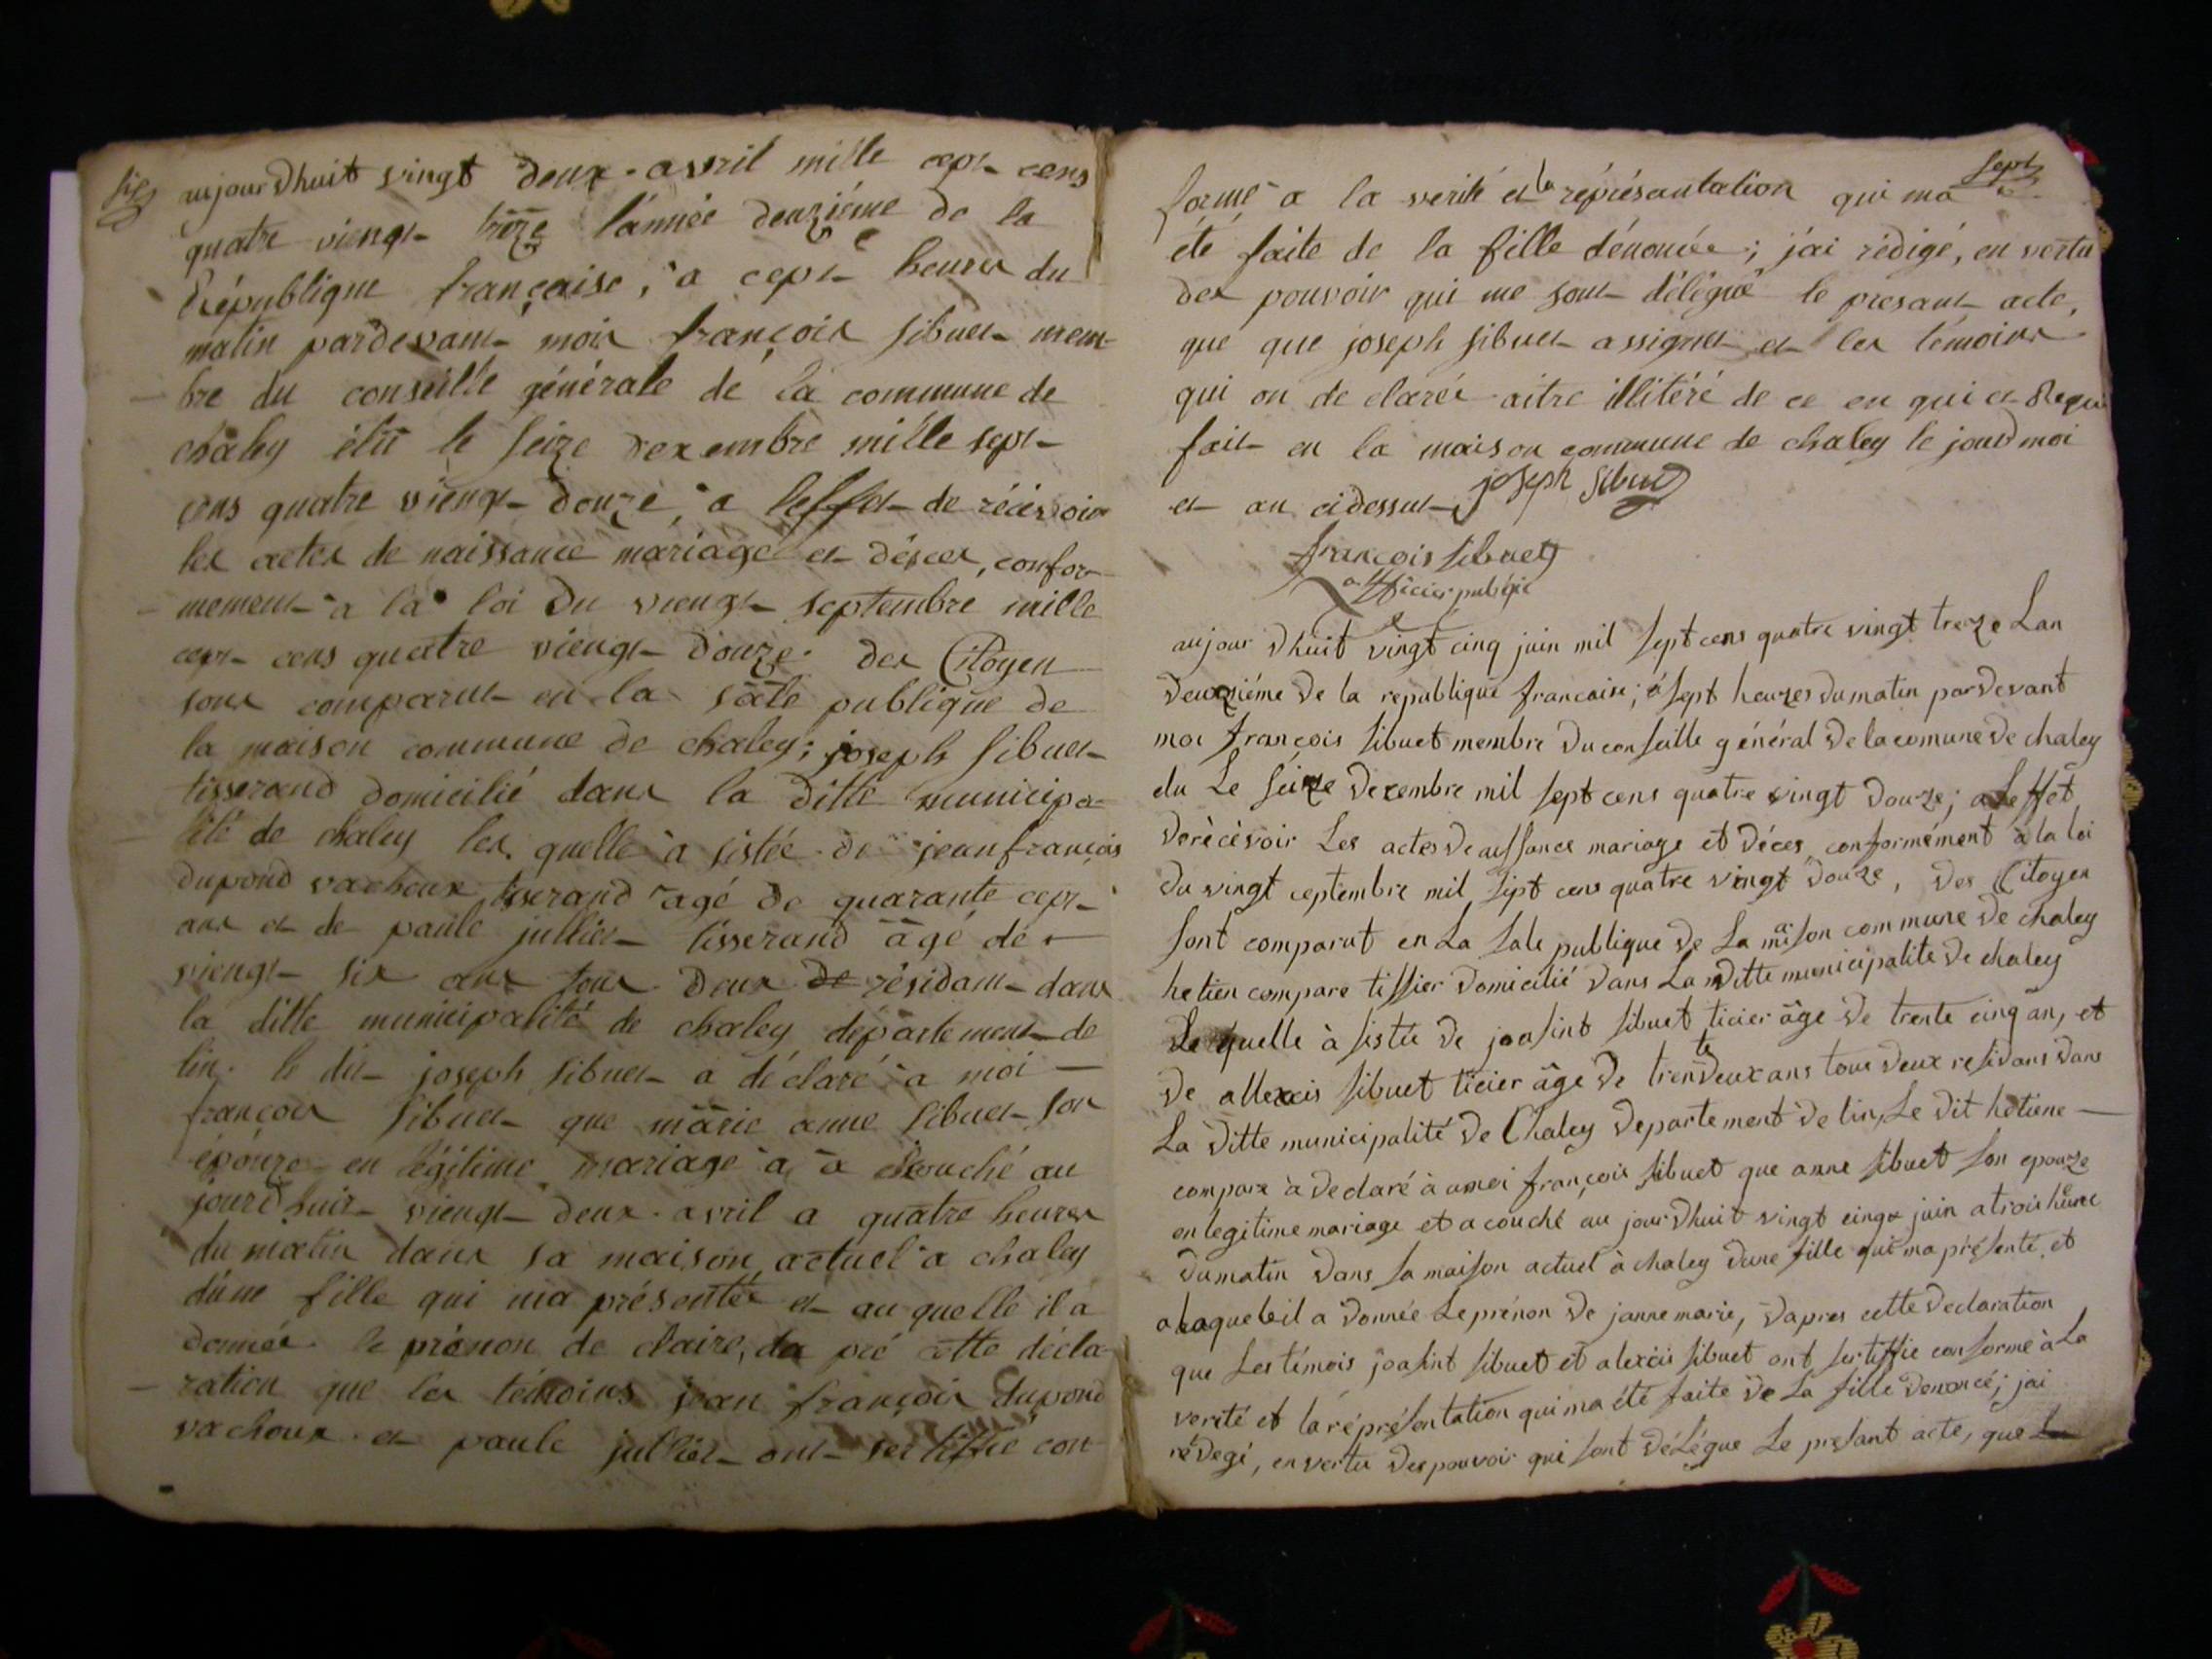 six
aujourdhuit vingt deux avril mille cept cens
quatre viengt trêze l'année deuziéme de la
République française, a cept heures du
matin pardevant mois françois sibuet mem-
bre du conseille générale de la commune de
chaley élû le seize dexembre mille sept
cens quatre viengt douze, a leffet de récevoir
les actes de naissance mariage et décès, confor-
mement a la loi du viengt septembre mille
cept cens quatre viengt douze. des Citoyen
sons comparut en la sale publique de
la maison commune de chaley; joseph sibuet
tisserand domicilié dans la ditte municipa-
lité de chaley les quelle a sistée de jeanfrançois
dupond vachoux tisserand agé de quarante cept
ans et de paule jullien tisserand âgé de
viengt six ans tous deux de résidant dans
la ditte municipalité de chaley département de
lin. le dit joseph sibuet a déclaré a moi
françois sibuet que marie anne sibuet son
épouze en légitime mariage a a couché au
jourdhuit viengt deux avril a quatre heures
du matin dans sa maison actuel a chaley
dune fille qui ma présentée et au quelle il a
donnée le prénon de claire, da pré cette décla-
ration que les témoins jean françois dupond
vachoux et paule jullien ont sertiffié con
sept
forme a la verité et la réprésantation qui ma
été faite de la fille dénoncée; jai rédigé, en vertu
des pouvoir qui me sont délégué le presant acte,
que que joseph sibuet assignet et les témoins
qui on de clarée aitre illitéré de ce en qui et Requi
fait en la maison commune de chaley le jour moi
et an cidessut joseph sibuet
françois sibuet
officier publique
aujour dhuit vingt cinq juin mil sept cens quatre vingt treze Lan
deuxziéme de la republique francaise; a sept heurzes dumatin pardevant
moi françois sibuet membre du conseille général de la comune de chaley
elu Le seize decembre mil sept cens quatre vingt douze; a Leffet
derècèvoir Les actes denaissance mariage et déces conformément à la loi
du vingt ceptembre mil sept cens quatre vingt douze, des Citoyen
sont comparut en La sale publique de La maison commune de chaley
hetien compare tissier domicilié dans La ditte municipalite de chaley
Le quelle à sistée de joasint sibuet ticier âge de trente cinq an, et
de allexis sibuet ticier âge de trentedeux ans tous deux residans dans
La ditte municipalité de Chaley departement de lin, Le dit hetiene
compare a declaré à amoi françois sibuet que anne sibuet son epouze
en legitime mariage et a couché au jourdhuit vingt cinqe juin a trois heures
dumatin dans sa maison actuel à chaley dune fille qui ma présenté et
alaquele il a donnée Le prénon de janne marie, dapres cette declaration
que Les témois joasint sibuet et alexcis sibuet ont sertiffie conforme à La
verité et la réprésentation qui ma été faite de La fille denoncé; jai
rédegé, en vertu des pouvoir qui sont délégue Le presant acte, que Le